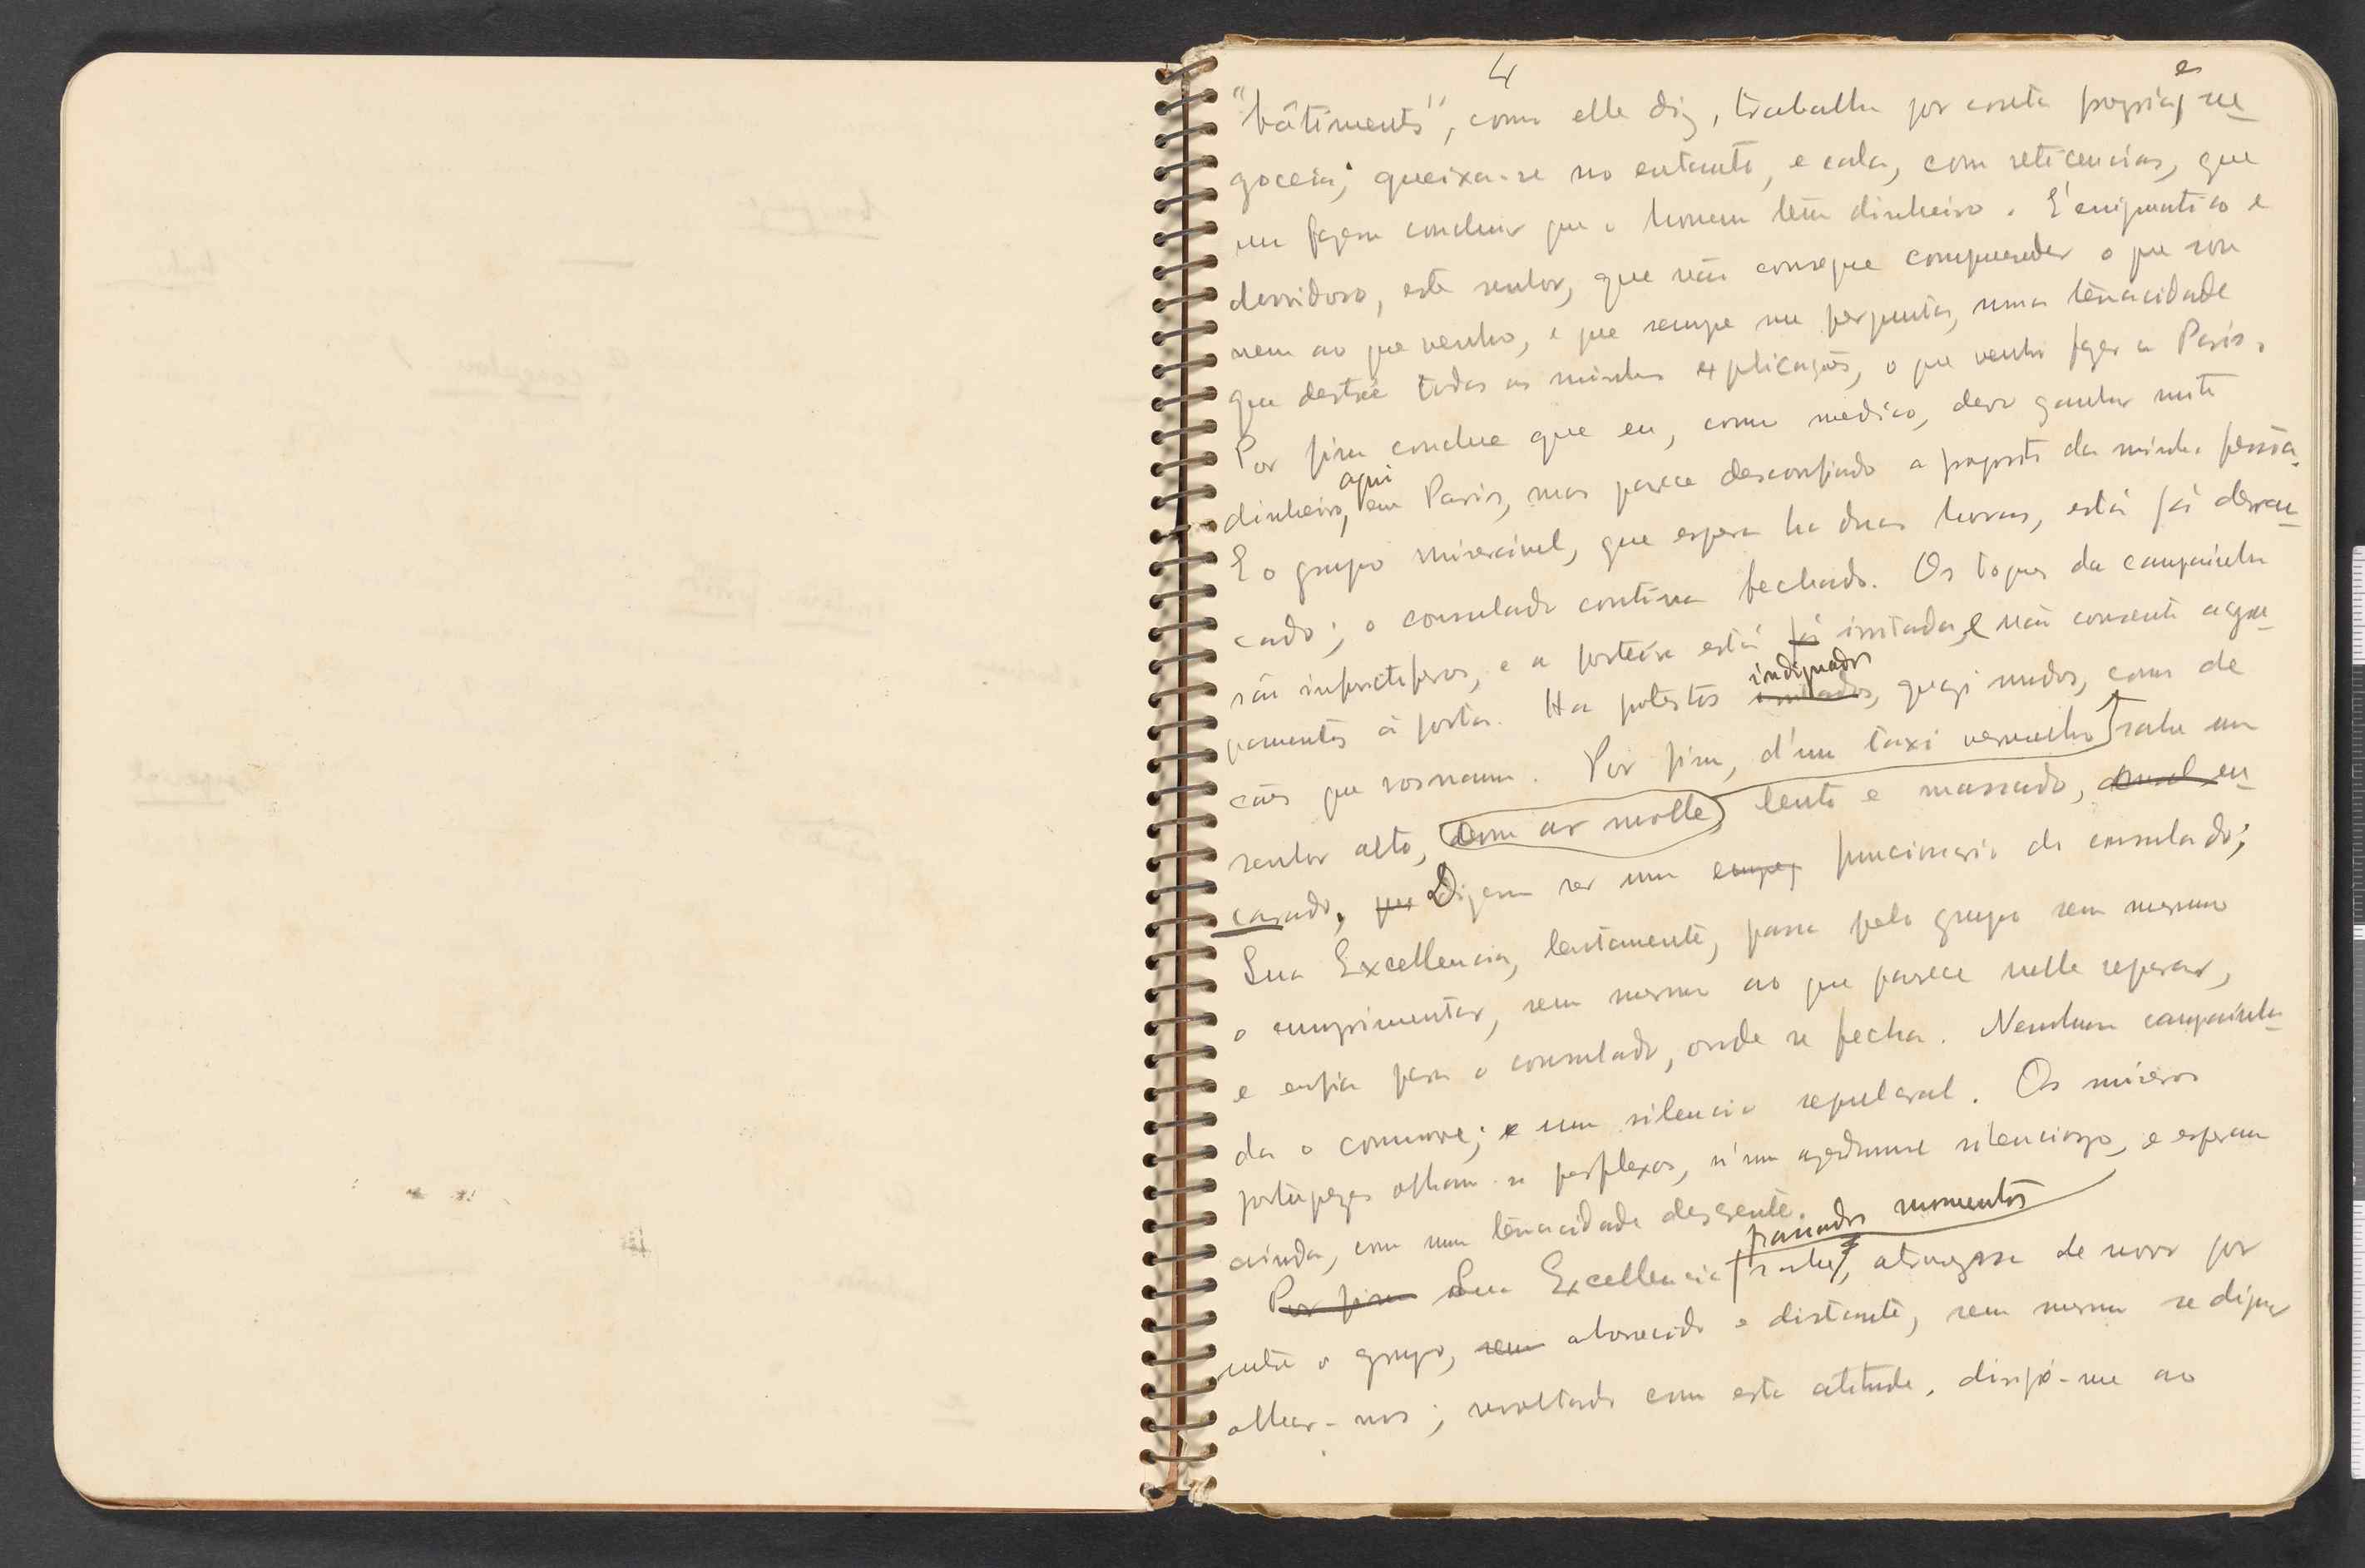 4
"bâtiments", como elle diz, trabalha por conta propria, e ne-
goceia; queixa-se no entanto, e cala, com reticencias, que
me fazem concluir que o homem tem dinheiro. É enigmatico e
desvidoso, este senhor, que não consegue comprehender o que sou
nem ao que venho, e que sempre me pergunta, numa tenacidade
que destroe todas as minhas explicações, o que venho fazer a Paris.
Por fim conclue que eu, como medico, devo ganhar muito
dinheiro, aqui em Paris, mas parece desconfiado a proposito da minha pessoa.
E o grupo miseravel, que espera ha duas horas, está já desran-
cado; o consulado continua fechado. Os toques da campainha
são infructiferos, e a porteira está já irritada, e não consente agru-
pamentos á porta. Ha protestos indignados, quazi mudos, como de
cães que rosnam. Por fim, d'um taxi vermelho sahe um
senhor alto, com ar molle, lento e massado, en-
casado, que Dizem ser um empreg funcionario do consulado;
Sua Excellencia, lentamente, passa pelo grupo sem mesmo
o cumprimentar, sem mesmo ao que parece nelle reparar,
e enfia para o consulado, onde se fecha. Nenhuma campainha-
da o commove; e um silencio sepulcral. Os miseros
portuguezes olham-se perplexos, n'um azedume silenciozo, e esperam
ainda, com uma tenacidade descrente.
passados momentos
Por fim Sua Excellencia sahe, atravessa de novo por
entre o grupo, sem aborrecido e distante, sem mesmo se dignar
olhar-nos; revoltado com esta atitude, dirijo-me ao